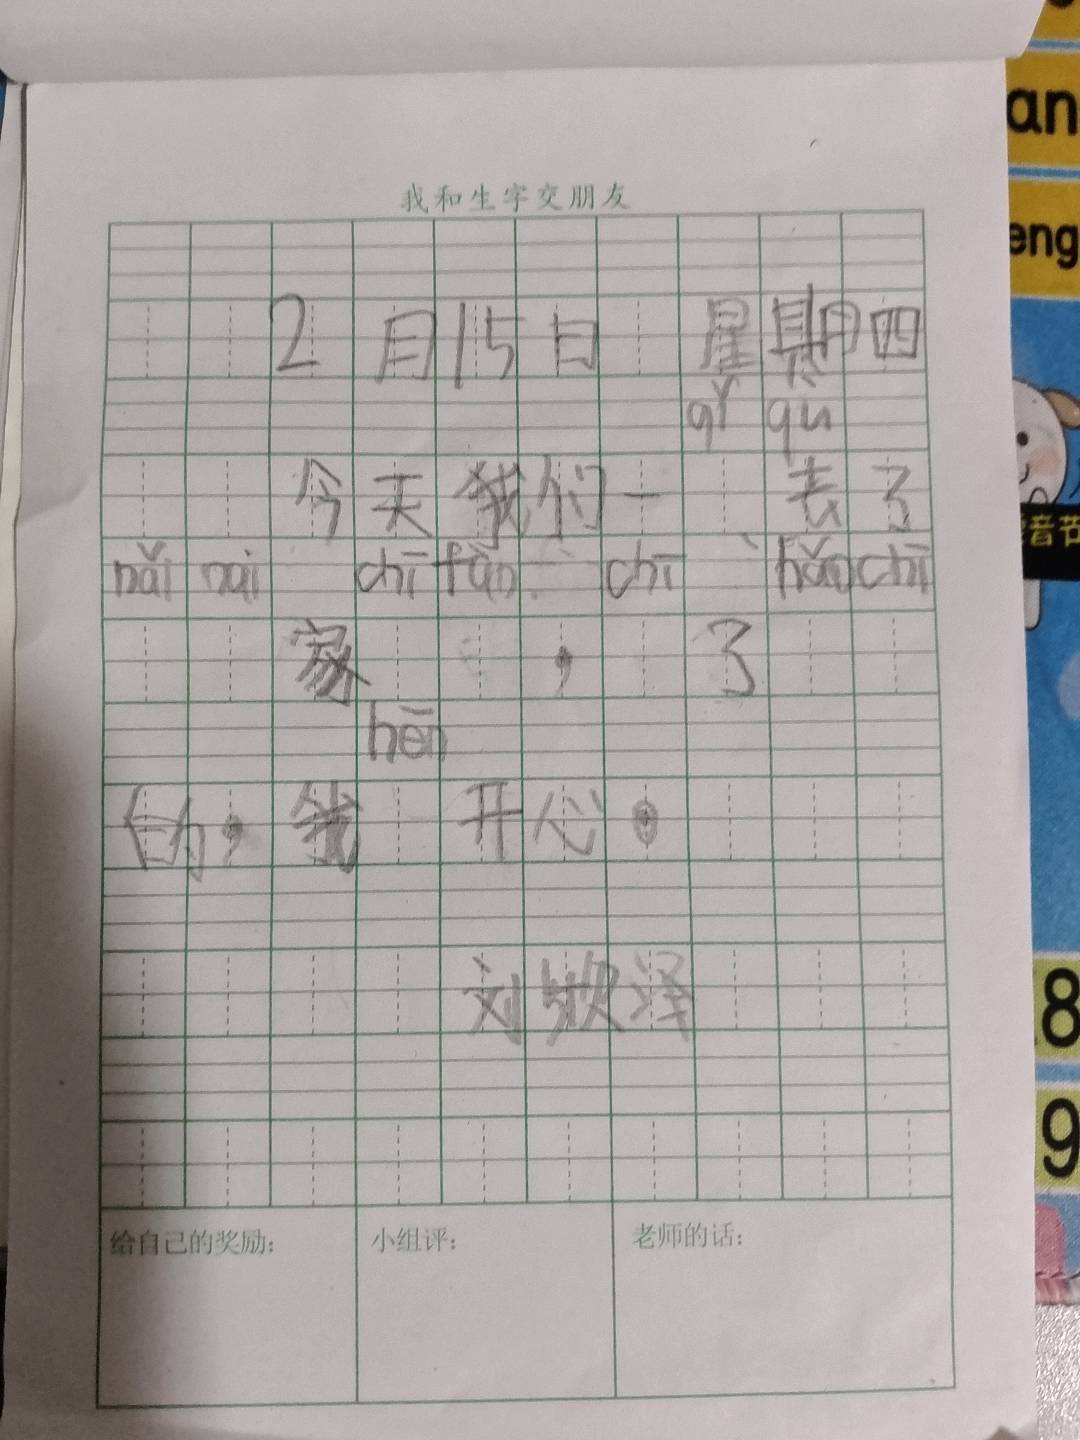 我和生字交朋友
2月15日 星期四
qǐ qù
今天我们一 去了
nǎi nai chī fàn chī hǎo chī
家 ， 了
hēn
的，我 开心。
刘欣泽
给自己的奖励： 小组评： 老师的话：
an
eng
音节
8
9